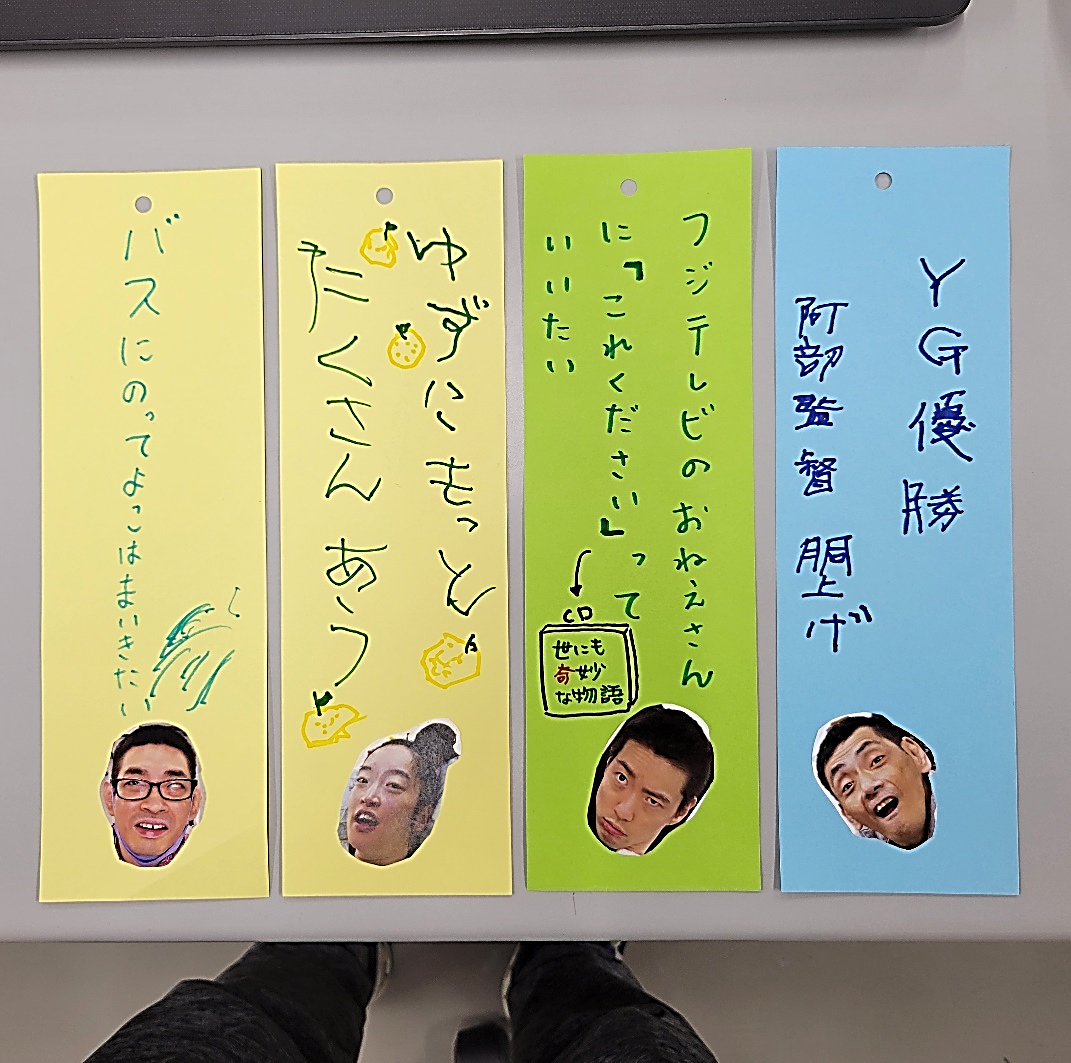 バスにのってよこはまいきたい
ゆずにもっと
たくさんあう
フジテレビのおねえさん
に『これください』って
いいたい
CD
世にも
奇妙
な物語
YG優勝
阿部監督 胴上げ